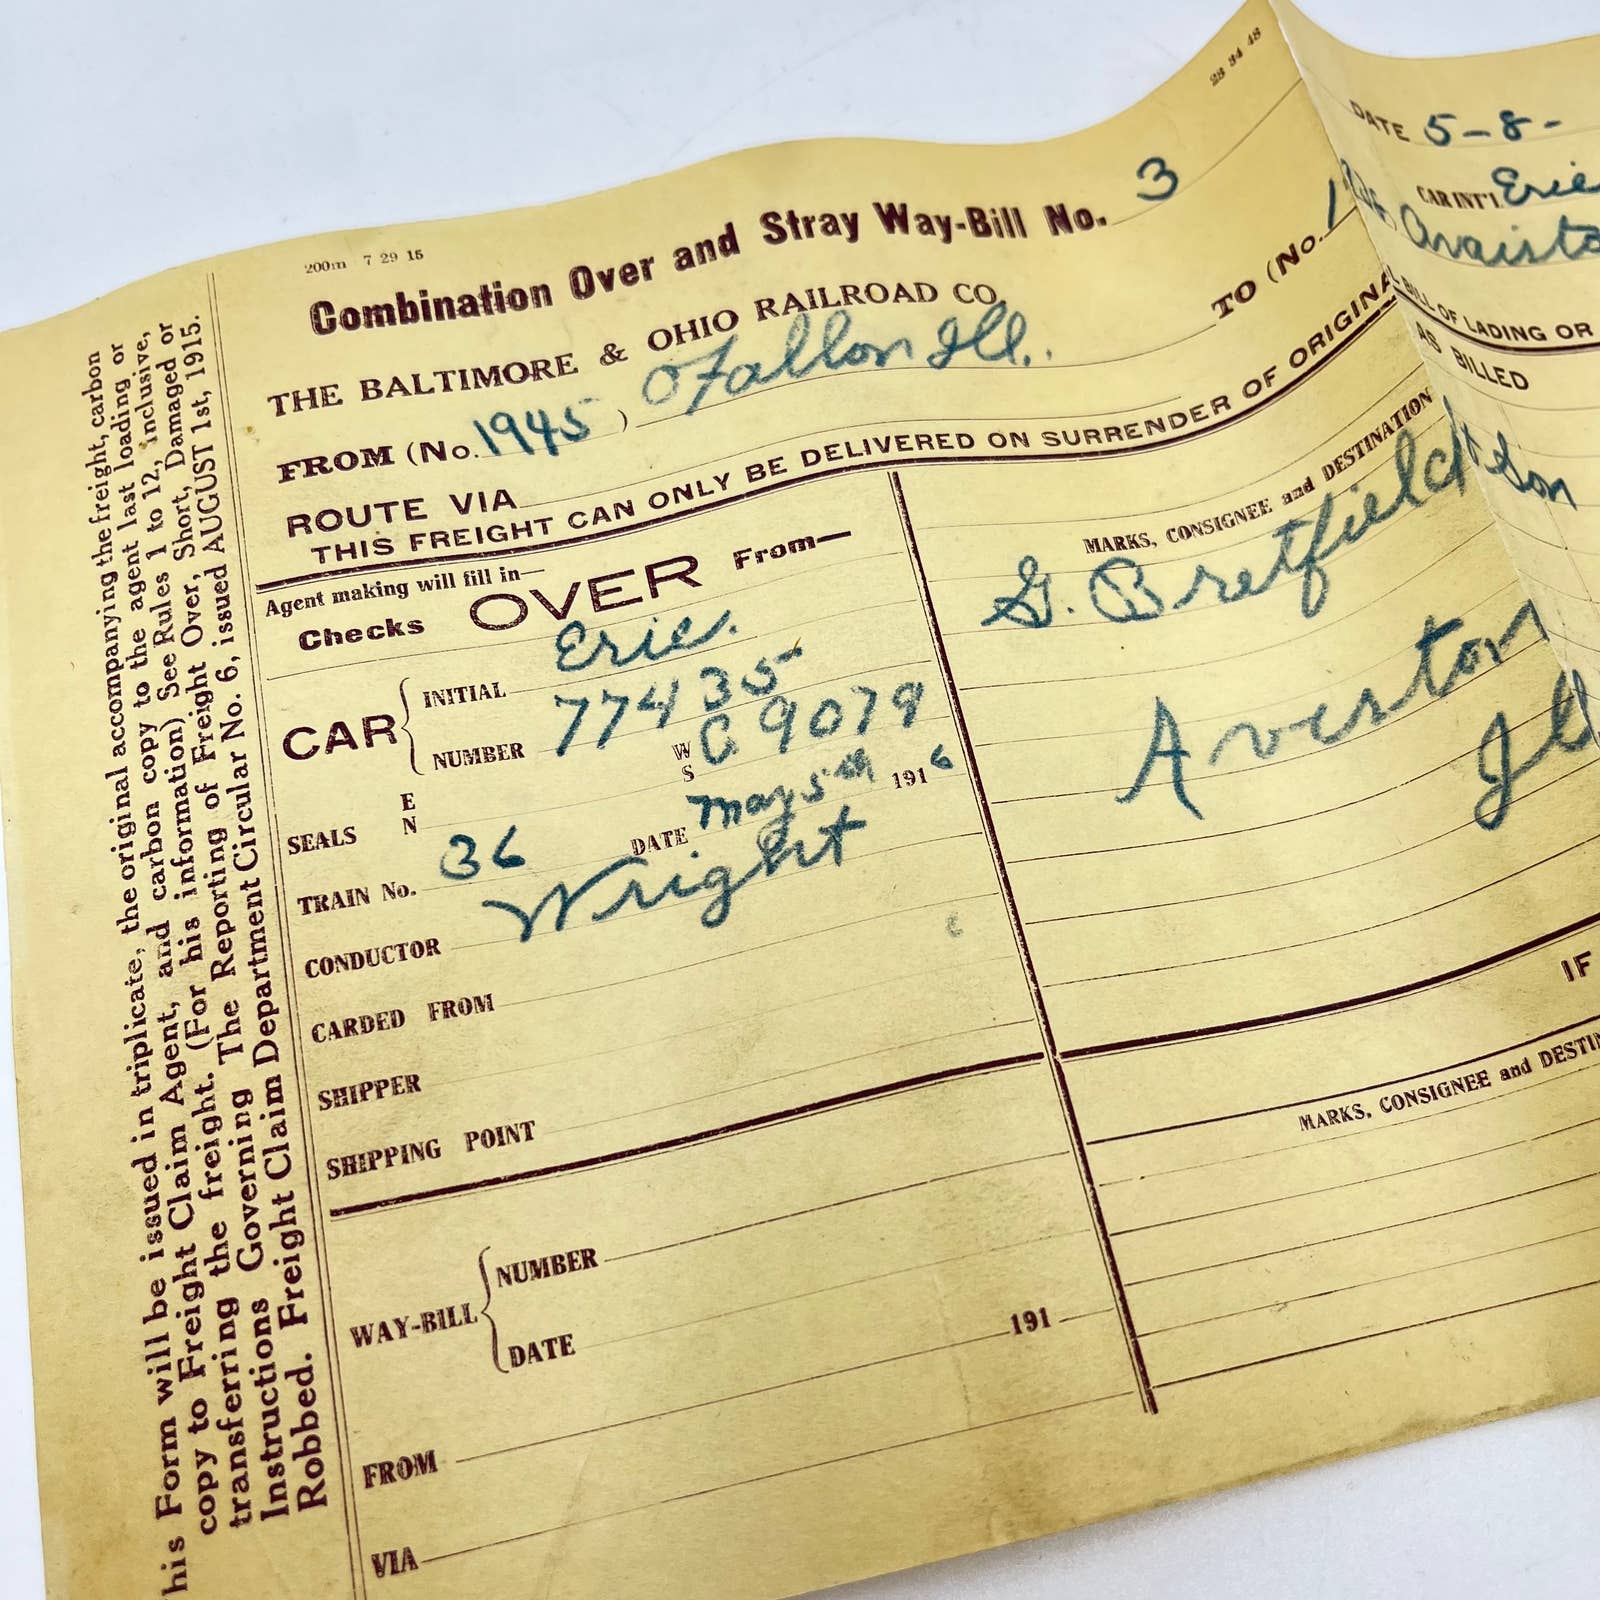 28 94 48
200m 7 29 15
Combination Over and Stray Way-Bill No. 3
THE BALTIMORE & OHIO RAILROAD CO.
FROM (No. 1945) OFallon Ill. TO (No. 1
ROUTE VIA
THIS FREIGHT CAN ONLY BE DELIVERED ON SURRENDER OF ORIGINAL BILL OF LADING OR
Agent making will fill in—
Checks OVER From—
CAR
INITIAL Erie.
NUMBER 77435
SEALS
E
N
W
S
C 9079
TRAIN No. 36 DATE May 5th 1916
CONDUCTOR Wright
CARDED FROM
SHIPPER
SHIPPING POINT
WAY-BILL
NUMBER
DATE 191
FROM
VIA
DATE 5-8-
CAR INT'L Erie
AS BILLED
MARKS, CONSIGNEE and DESTINATION
G. Bretfield & Son
Aviston
Ill
IF
MARKS, CONSIGNEE and DESTIN
his Form will be issued in triplicate, the original accompanying the freight, carbon
copy to Freight Claim Agent, and carbon copy to the agent last loading or
transferring the freight. (For his information) See Rules 1 to 12, inclusive,
Instructions Governing The Reporting of Freight Over, Short, Damaged or
Robbed. Freight Claim Department Circular No. 6, issued AUGUST 1st, 1915.